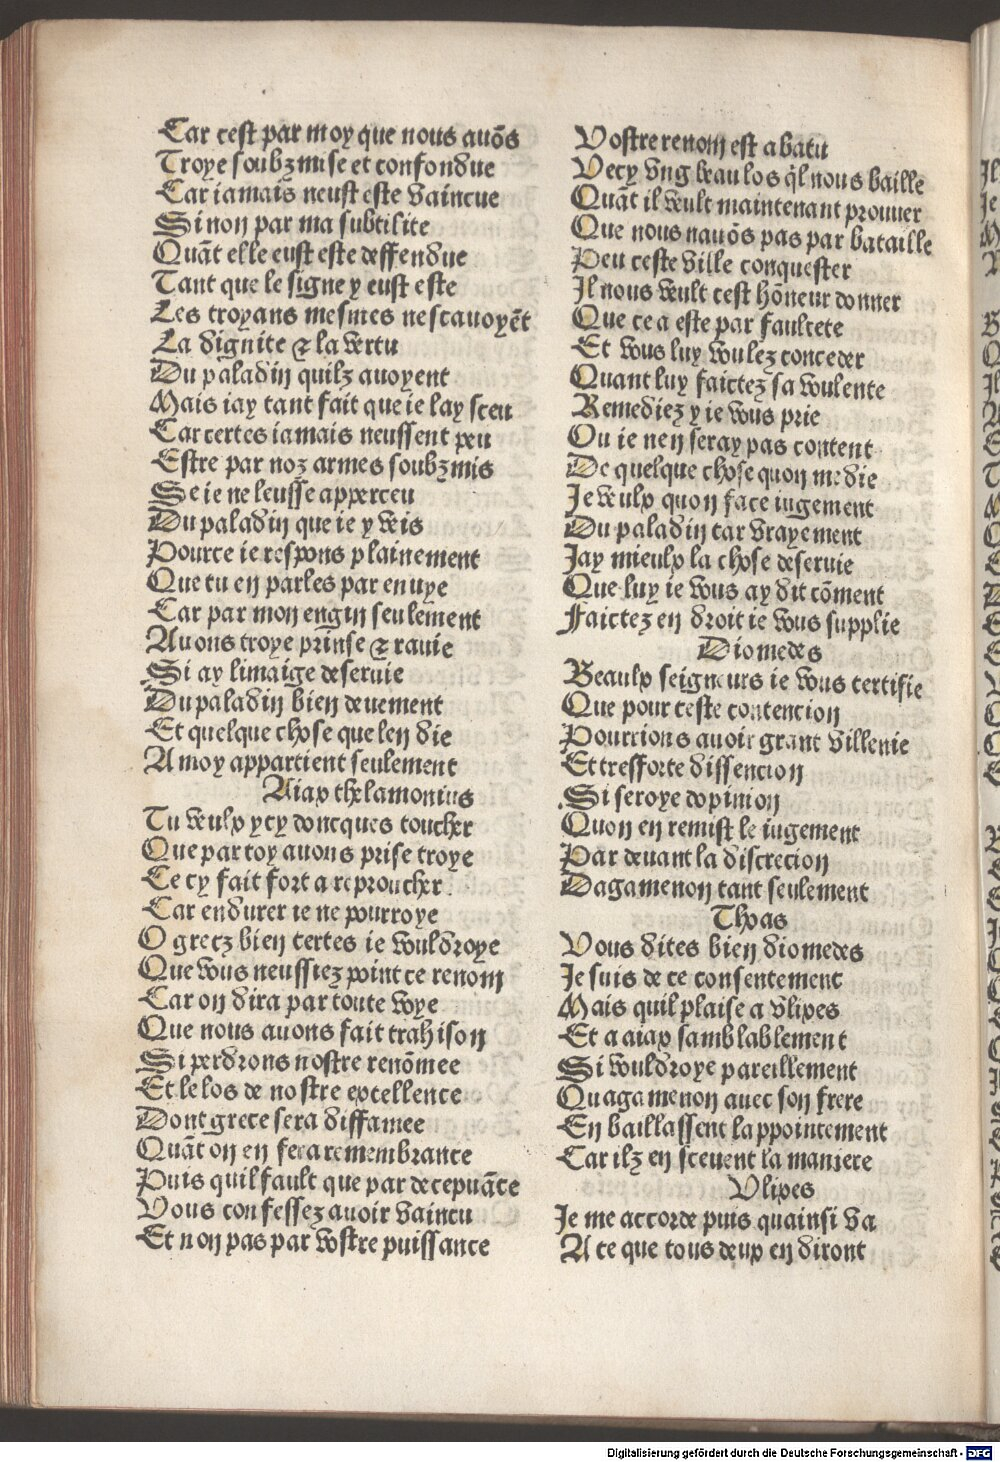 Car cest par moy que nous auōs
Troye soubzmise et confondue
Car iamais neust este vaincue
Si non par ma subtilite
Quāt elle eust este deffendue
Tant que le signe y eust este
Les troyans mesmes nescauoyēt
La dignite & la vertu
Du paladin quilz auoyent
Mais iay tant fait que ie lay sceu
Car certes iamais neussent peu
Estre par noz armes soubzmis
Se ie ne leusse apperceu
Du paladin que ie y veis
Pource ie respons plainement
Que tu en parles par enuye
Car par mon engin seulement
Auons troye prinse & rauie
Si ay limaige deseruie
Du paladin bien deuement
Et quelque chose que len die
A moy appartient seulement
Aiax thelamonius
Tu veulx ycy doncques toucher
Que par toy auons prise troye
Ce cy fait fort a reproucher
Car endurer ie ne pourroye
O grecz bien certes ie vouldroye
Que vous neussiez point ce renom
Car on dira par toute voye
Que nous auons fait trahison
Si perdrons nostre renōmee
Et le los de nostre excellence
Dont grece sera diffamee
Quāt on en fera remembrance
Puis quil fault que par decepuāce
Vous confessez auoir vaincu
Et non pas par vostre puissance
Vostre renom est abatu
Vecy vng beau los q̄l nous baille
Quāt il veult maintenant prouuer
Que nous nauōs pas par bataille
Peu ceste ville conquester
Il nous veult cest hōneur donner
Que ce a este par faulcete
Et vous luy voulez conceder
Quant luy faictez sa voulente
Remediez y ie vous prie
Ou ie nen seray pas content
De quelque chose quon me die
Je veulx quon face iugement
Du paladin car vrayement
Jay mieulx la chose deseruie
Que luy ie vous ay dit cōment
Faictez en droit ie vous supplie
Diomedes
Beaulx seigneurs ie vous certifie
Que pour ceste contencion
Pourrions auoir grant villenie
Et tresforte dissencion
Si seroye dopinion
Quon en remist le iugement
Par deuant la discrecion
Dagamenon tant seulement
Thoas
Vous dites bien diomedes
Je suis de ce consentement
Mais quil plaise a vlixes
Et a aiax samblablement
Si vouldroye pareillement
Quagamenon auec son frere
En baillassent lappointement
Car ilz en sceuent la maniere
Vlixes
Je me accorde puis quainsi va
A ce que tous deux en diront
Digitalisierung gefördert durch die Deutsche Forschungsgemeinschaft - DFG